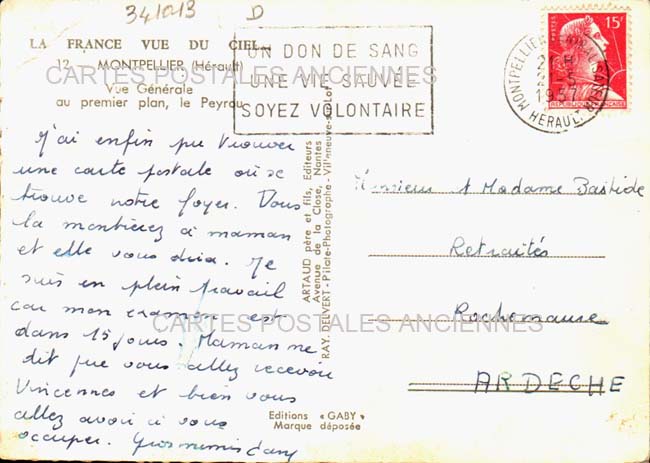 341013 D
LA FRANCE VUE DU CIEL
12 - MONTPELLIER (Hérault)
Vue Générale
au premier plan, le Peyrou
UN DON DE SANG
UNE VIE SAUVÉE
SOYEZ VOLONTAIRE
MONTPELLIER
21-5
1957
HERAULT
15F
POSTES
REPUBLIQUE FRANÇAISE
CARTES POSTALES ANCIENNES
J'ai enfin pu trouver
une carte postale où se
trouve notre foyer. Vous
la montrerez à maman
et elle vous dira. Je
suis en plein travail
car mon examen est
dans 15 jours. Maman me
dit que vous allez recevoir
Vincennes et bien vous
allez avoir à vous
occuper. Gros mimis
ARTAUD père et fils, Editeurs
Avenue de la Close, Nantes
RAY. DELVERT - Pilote-Photographe - Villeneuve-s-Lot
Monsieur et Madame Bastide
Retraités
Rochemaure
ARDECHE
CARTES POSTALES ANCIENNES
Editions « GABY »
Marque déposée